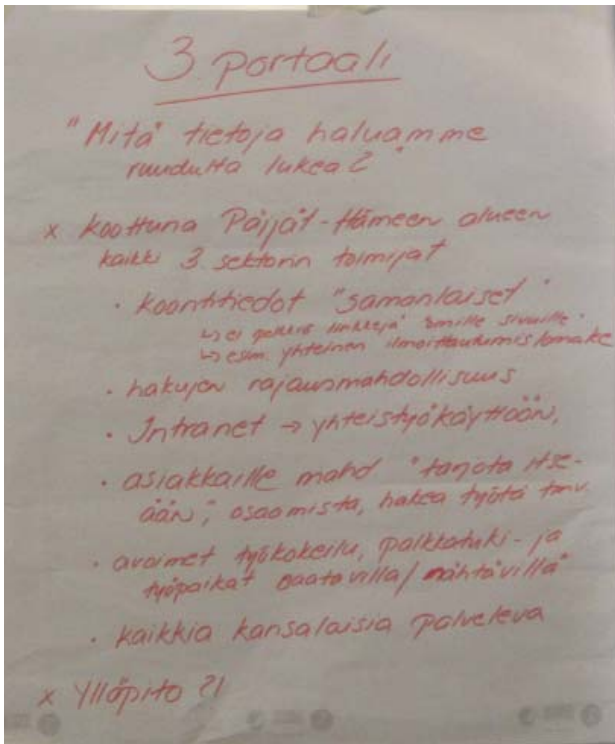 3 portaali
"Mitä" tietoja haluamme
ruudulta lukea?"
x koottuna Päijät-Hämeen alueen
kaikki 3. sektorin toimijat
· koontitiedot "samanlaiset"
↳ ei pelkkiä linkkejä "omille sivuille"
↳ esim. yhteinen ilmoittautumislomake
· hakujen rajausmahdollisuus
· Intranet → yhteistyökäyttöön,
· asiakkaille mahd "tarjota itse-
ään", osaamista, hakea työtä tmv.
· avoimet työkokeilu, palkkatuki- ja
työpaikat saatavilla/nähtävillä"
· kaikkia kansalaisia palveleva
x Ylläpito ?!